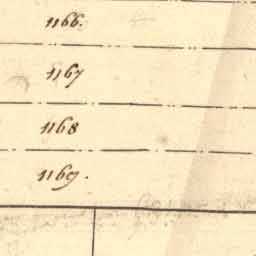 1166.
1167
1168
1169.